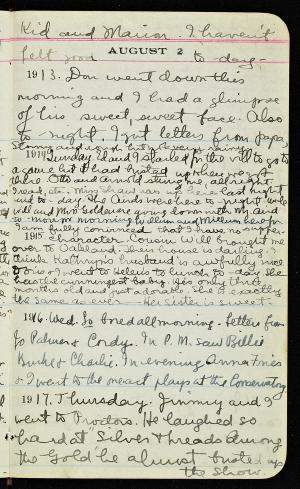 Kid and Marion. I haven't
felt good to-day-
AUGUST 2
1913. Don went down this
morning and I had a glimpse
of his sweet, sweet face. Also
to night. I got letters from papa,
1914 Sunday. Id and I started for the vill to go to
a game but it had busted up when we got
there. Otto and Arnold sitting me all night
I read, etc. Miss Shaw ran in here last night
and to-day. The Auds were here to-night
will and Mrs. going down with Id and
so-morrow morning.
I am fully convinced that I have no
1915. character. Cousin Will brought me
over to Oakland. Their house is darling. I
think Kathryn's husband is awfully nice
I went to Helen's to lunch to-day. She
has the cunningest baby. He's only three
months old and just adorable. She is exactly
the same as ever - Her sister is sweet.
1916. Wed. So bored all morning. Letters from
Jo Palmer & Cordy. In P.M. saw Billie
Burke & Charlie. In evening Anna
& I went to the meact plays at the Conservatory
1917. Thursday. Jimmy and I
went to Proctors. He laughed so
hard at "Silver Threads Among
the Gold" he almost busted up
the show.